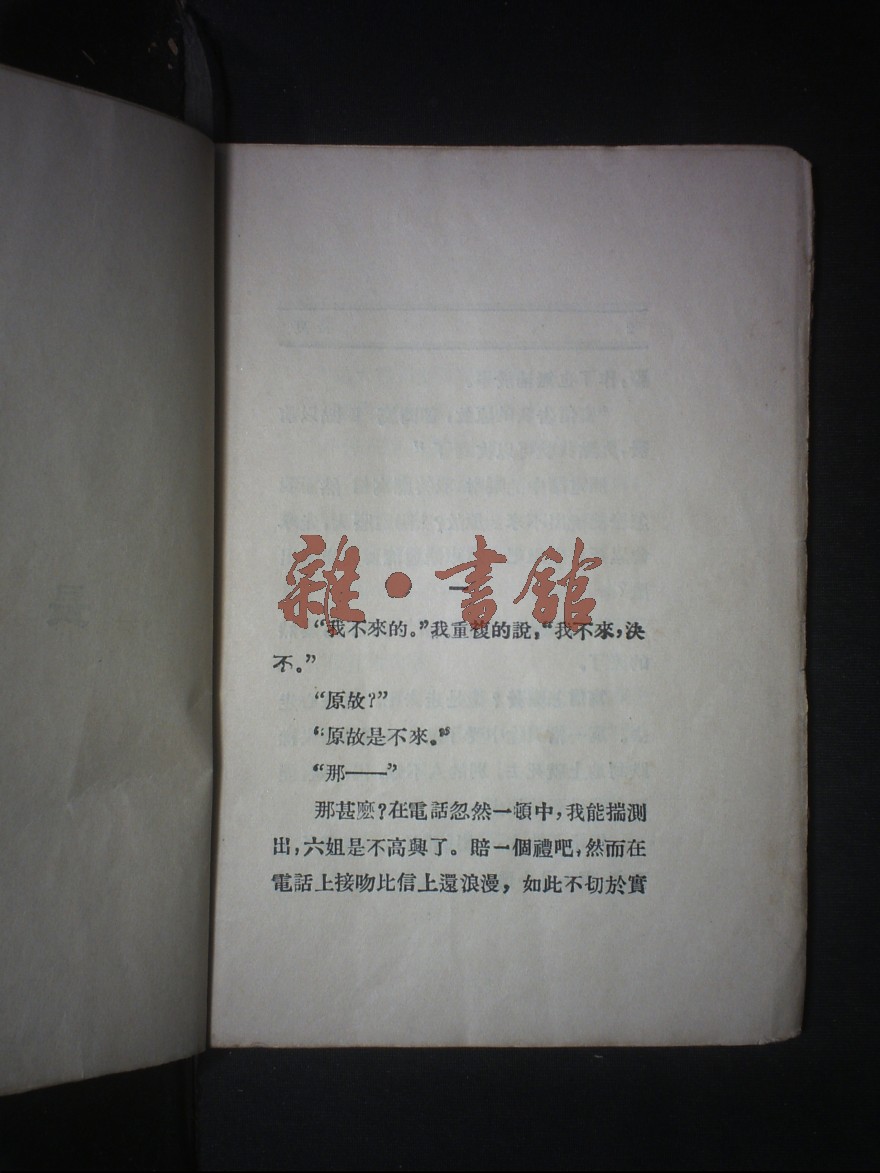 一
雜·書館
“我不來的。”我重複的說，“我不來，決
不。”
“原故？”
“原故是不來。”
“那——”
那甚麽？在電話忽然一頓中，我能揣測
出，六姐是不高興了。賠一個禮吧，然而在
電話上接吻比信上還浪漫，如此不切於實